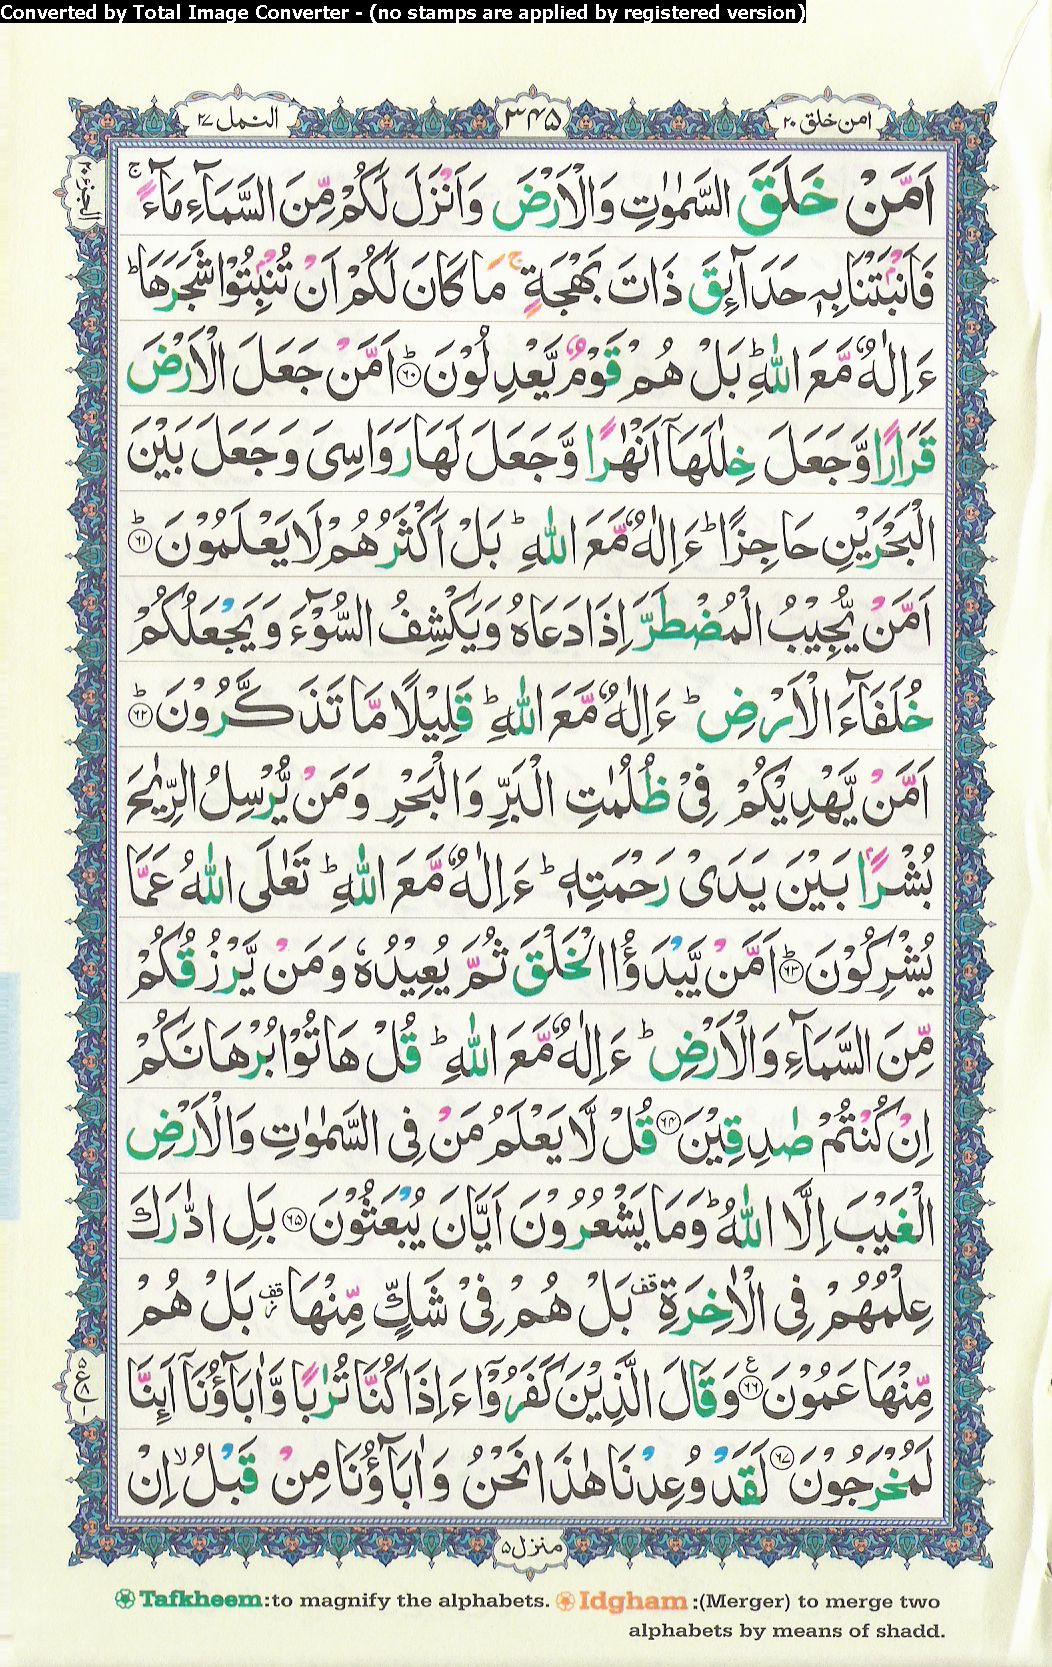 Converted by Total Image Converter - (no stamps are applied by registered version)
امن خلق ۲۰
۳۴۵
النمل ۲۷
الجزء ۲۰
اَمَّنْ خَلَقَ السَّمٰوٰتِ وَالْاَرْضَ وَاَنْزَلَ لَكُمْ مِّنَ السَّمَآءِ مَآءً ۚ
فَاَنْۢبَتْنَا بِهٖ حَدَآئِقَ ذَاتَ بَهْجَةٍ ۚ مَا كَانَ لَكُمْ اَنْ تُنْۢبِتُوْا شَجَرَهَا ؕ
ءَاِلٰهٌ مَّعَ اللّٰهِ ؕ بَلْ هُمْ قَوْمٌ يَّعْدِلُوْنَ ؕ۶۰ اَمَّنْ جَعَلَ الْاَرْضَ
قَرَارًا وَّجَعَلَ خِلٰلَهَاۤ اَنْهٰرًا وَّجَعَلَ لَهَا رَوَاسِىَ وَجَعَلَ بَيْنَ
الْبَحْرَيْنِ حَاجِزًا ؕ ءَاِلٰهٌ مَّعَ اللّٰهِ ؕ بَلْ اَكْثَرُهُمْ لَا يَعْلَمُوْنَ ؕ۶۱
اَمَّنْ يُّجِيْبُ الْمُضْطَرَّ اِذَا دَعَاهُ وَيَكْشِفُ السُّوْٓءَ وَيَجْعَلُكُمْ
خُلَفَآءَ الْاَرْضِ ؕ ءَاِلٰهٌ مَّعَ اللّٰهِ ؕ قَلِيْلًا مَّا تَذَكَّرُوْنَ ؕ۶۲
اَمَّنْ يَّهْدِيْكُمْ فِىْ ظُلُمٰتِ الْبَرِّ وَالْبَحْرِ وَمَنْ يُّرْسِلُ الرِّيٰحَ
بُشْرًاۢ بَيْنَ يَدَىْ رَحْمَتِهٖ ؕ ءَاِلٰهٌ مَّعَ اللّٰهِ ؕ تَعٰلَى اللّٰهُ عَمَّا
يُشْرِكُوْنَ ؕ۶۳ اَمَّنْ يَّبْدَؤُا الْخَلْقَ ثُمَّ يُعِيْدُهٗ وَمَنْ يَّرْزُقُكُمْ
مِّنَ السَّمَآءِ وَالْاَرْضِ ؕ ءَاِلٰهٌ مَّعَ اللّٰهِ ؕ قُلْ هَاتُوْا بُرْهَانَكُمْ
اِنْ كُنْتُمْ صٰدِقِيْنَ ۶۴ قُلْ لَّا يَعْلَمُ مَنْ فِى السَّمٰوٰتِ وَالْاَرْضِ
الْغَيْبَ اِلَّا اللّٰهُ ؕ وَمَا يَشْعُرُوْنَ اَيَّانَ يُبْعَثُوْنَ ۶۵ بَلِ ادّٰرَكَ
عِلْمُهُمْ فِى الْاٰخِرَةِ قف بَلْ هُمْ فِىْ شَكٍّ مِّنْهَا قف بَلْ هُمْ
مِّنْهَا عَمُوْنَ ۶۶ع وَقَالَ الَّذِيْنَ كَفَرُوْۤا ءَاِذَا كُنَّا تُرٰبًا وَّاٰبَآؤُنَاۤ اَئِنَّا
لَمُخْرَجُوْنَ ۶۷ لَقَدْ وُعِدْنَا هٰذَا نَحْنُ وَاٰبَآؤُنَا مِنْ قَبْلُ ۙ اِنْ
منزل ۵
Tafkheem:to magnify the alphabets. Idgham :(Merger) to merge two
alphabets by means of shadd.